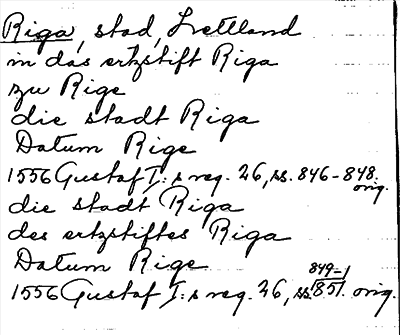 Riga, stad, Lettland
in das ertzstift Riga
zu Rige
die stadt Riga
Datum Rige
1556 Gustaf I:s reg. 26, ss. 846-848. orig.
die stadt Riga
des ertzstiftes Riga
Datum Rige
1556 Gustaf I:s reg. 26, ss. 849-1/851. orig.